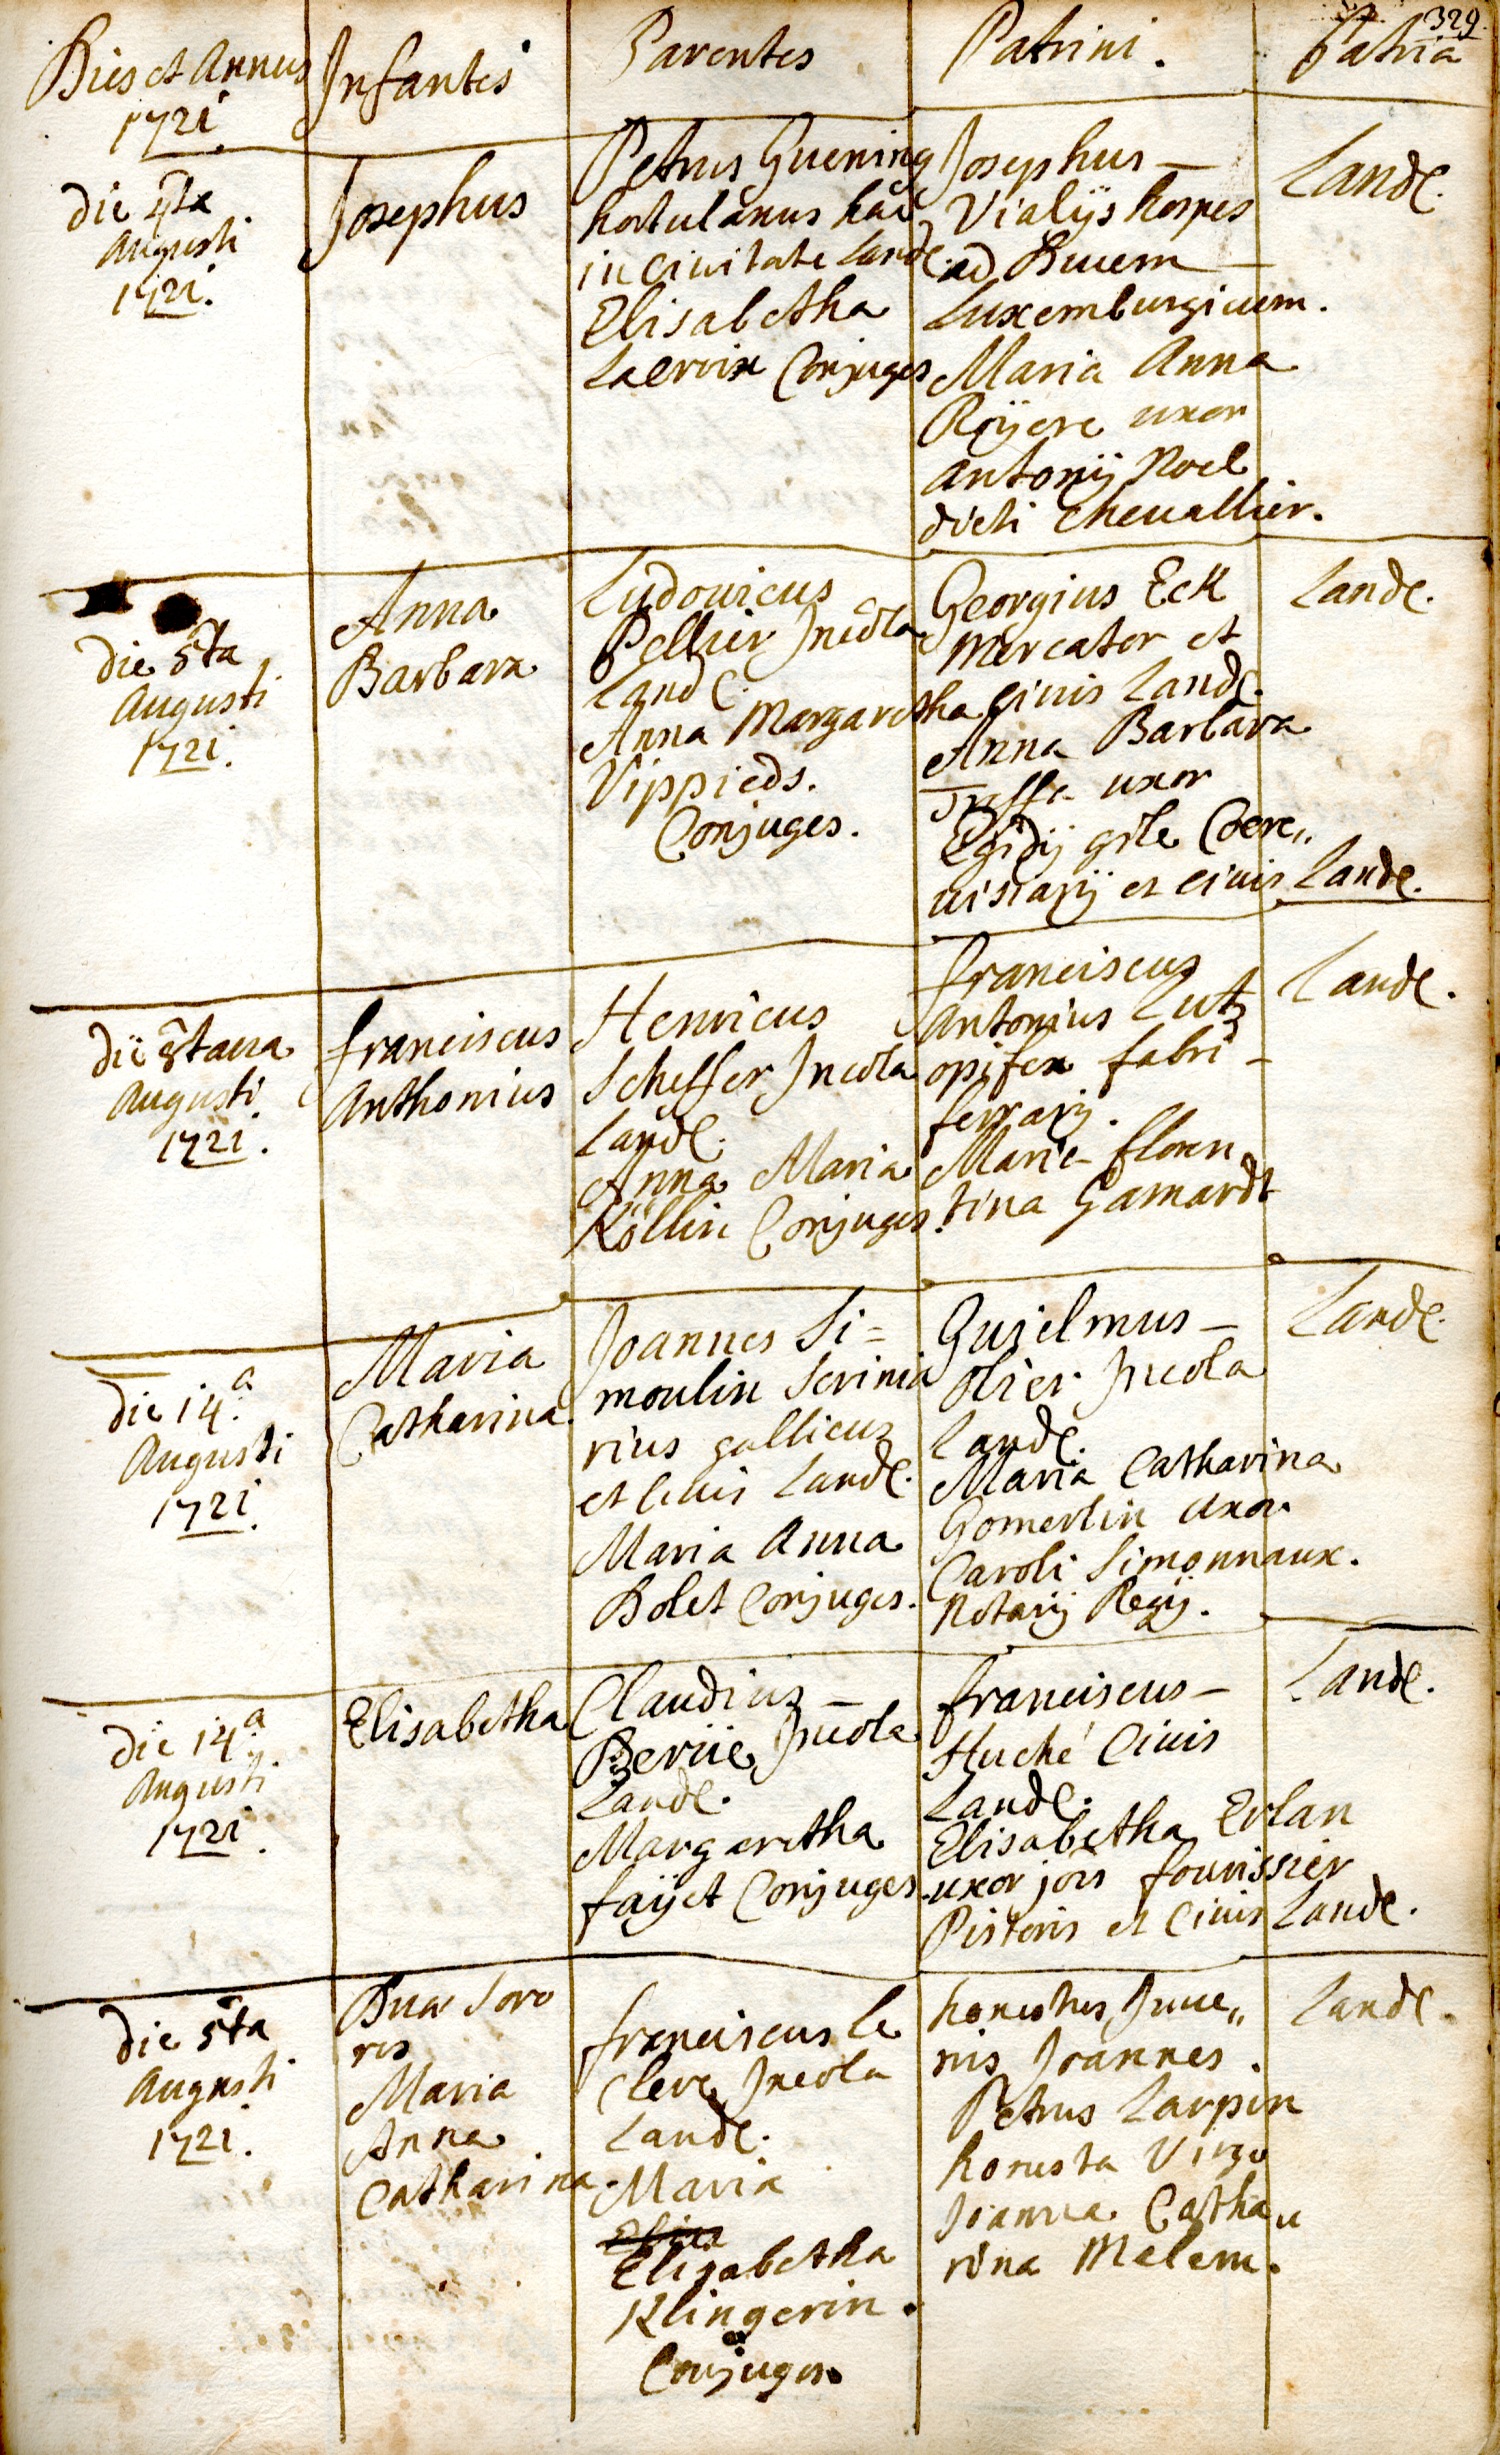 329
Dies et Annus
1721
Infantes
Parentes
Patrini.
Patria
die 4ta
Augusti
1721.
Josephus
Petrus Guening
hortulanus hac
in Civitate Land.
Elisabetha
Lacroix Conjuges
Josephus –
Vialijs hospes
ad Ducem –
Luxemburgicum.
Maria Anna
Roÿere uxor
Antonij Noel
dicti Chevallier.
Land.
die 5ta
Augusti
1721.
Anna
Barbara
Ludovicus
Pellier Incola
Land.
Anna Margaretha
Vippieds.
Conjuges.
Georgius Eck
Mercator et
civis Land.
Anna Barbara
uxor
Egidij gile Cere„
visiarij et civis Land.
Land.
die 8tava
Augusti
1721.
franciscus
Anthonius
Henricus
Scheffer Incola
Land.
Anna Maria
Köllin Conjuges.
franciscus
Antonius Lutz
opifex fabri –
ferrarij.
Maria floren
tina Gamardt
Land.
die 14.a
Augusti
1721.
Maria
Catharina.
Joannes Si=
moulin Scrinia
rius gallicus
et Civis Land.
Maria Anna
Bolet Conjuges.
Guielmus –
Olier Incola
Land.
Maria Catharina
Gomerlin uxor
Caroli Simonnaux.
Notarij Regij.
Land.
die 14.a
Augusti
1721.
Elisabetha
Claudius –
Incola
Land.
Margaretha
faÿet Conjuges.
franciscus –
Huché Civis
Land.
Elisabetha Erlan
uxor jois fourissier
Pistoris et Civis Land.
Land.
die 5ta
Augusti
1721.
Duae Soro
res
Maria
Anna
Catharina.
franciscus le
Clerc Incola
Land.
Maria
Elisabetha
Klingerin.
Conjuges
honestus Juve„
nis Joannes.
Petrus Larpin
honesta Virgo
Joanna Catha„
rina Melem.
Land.